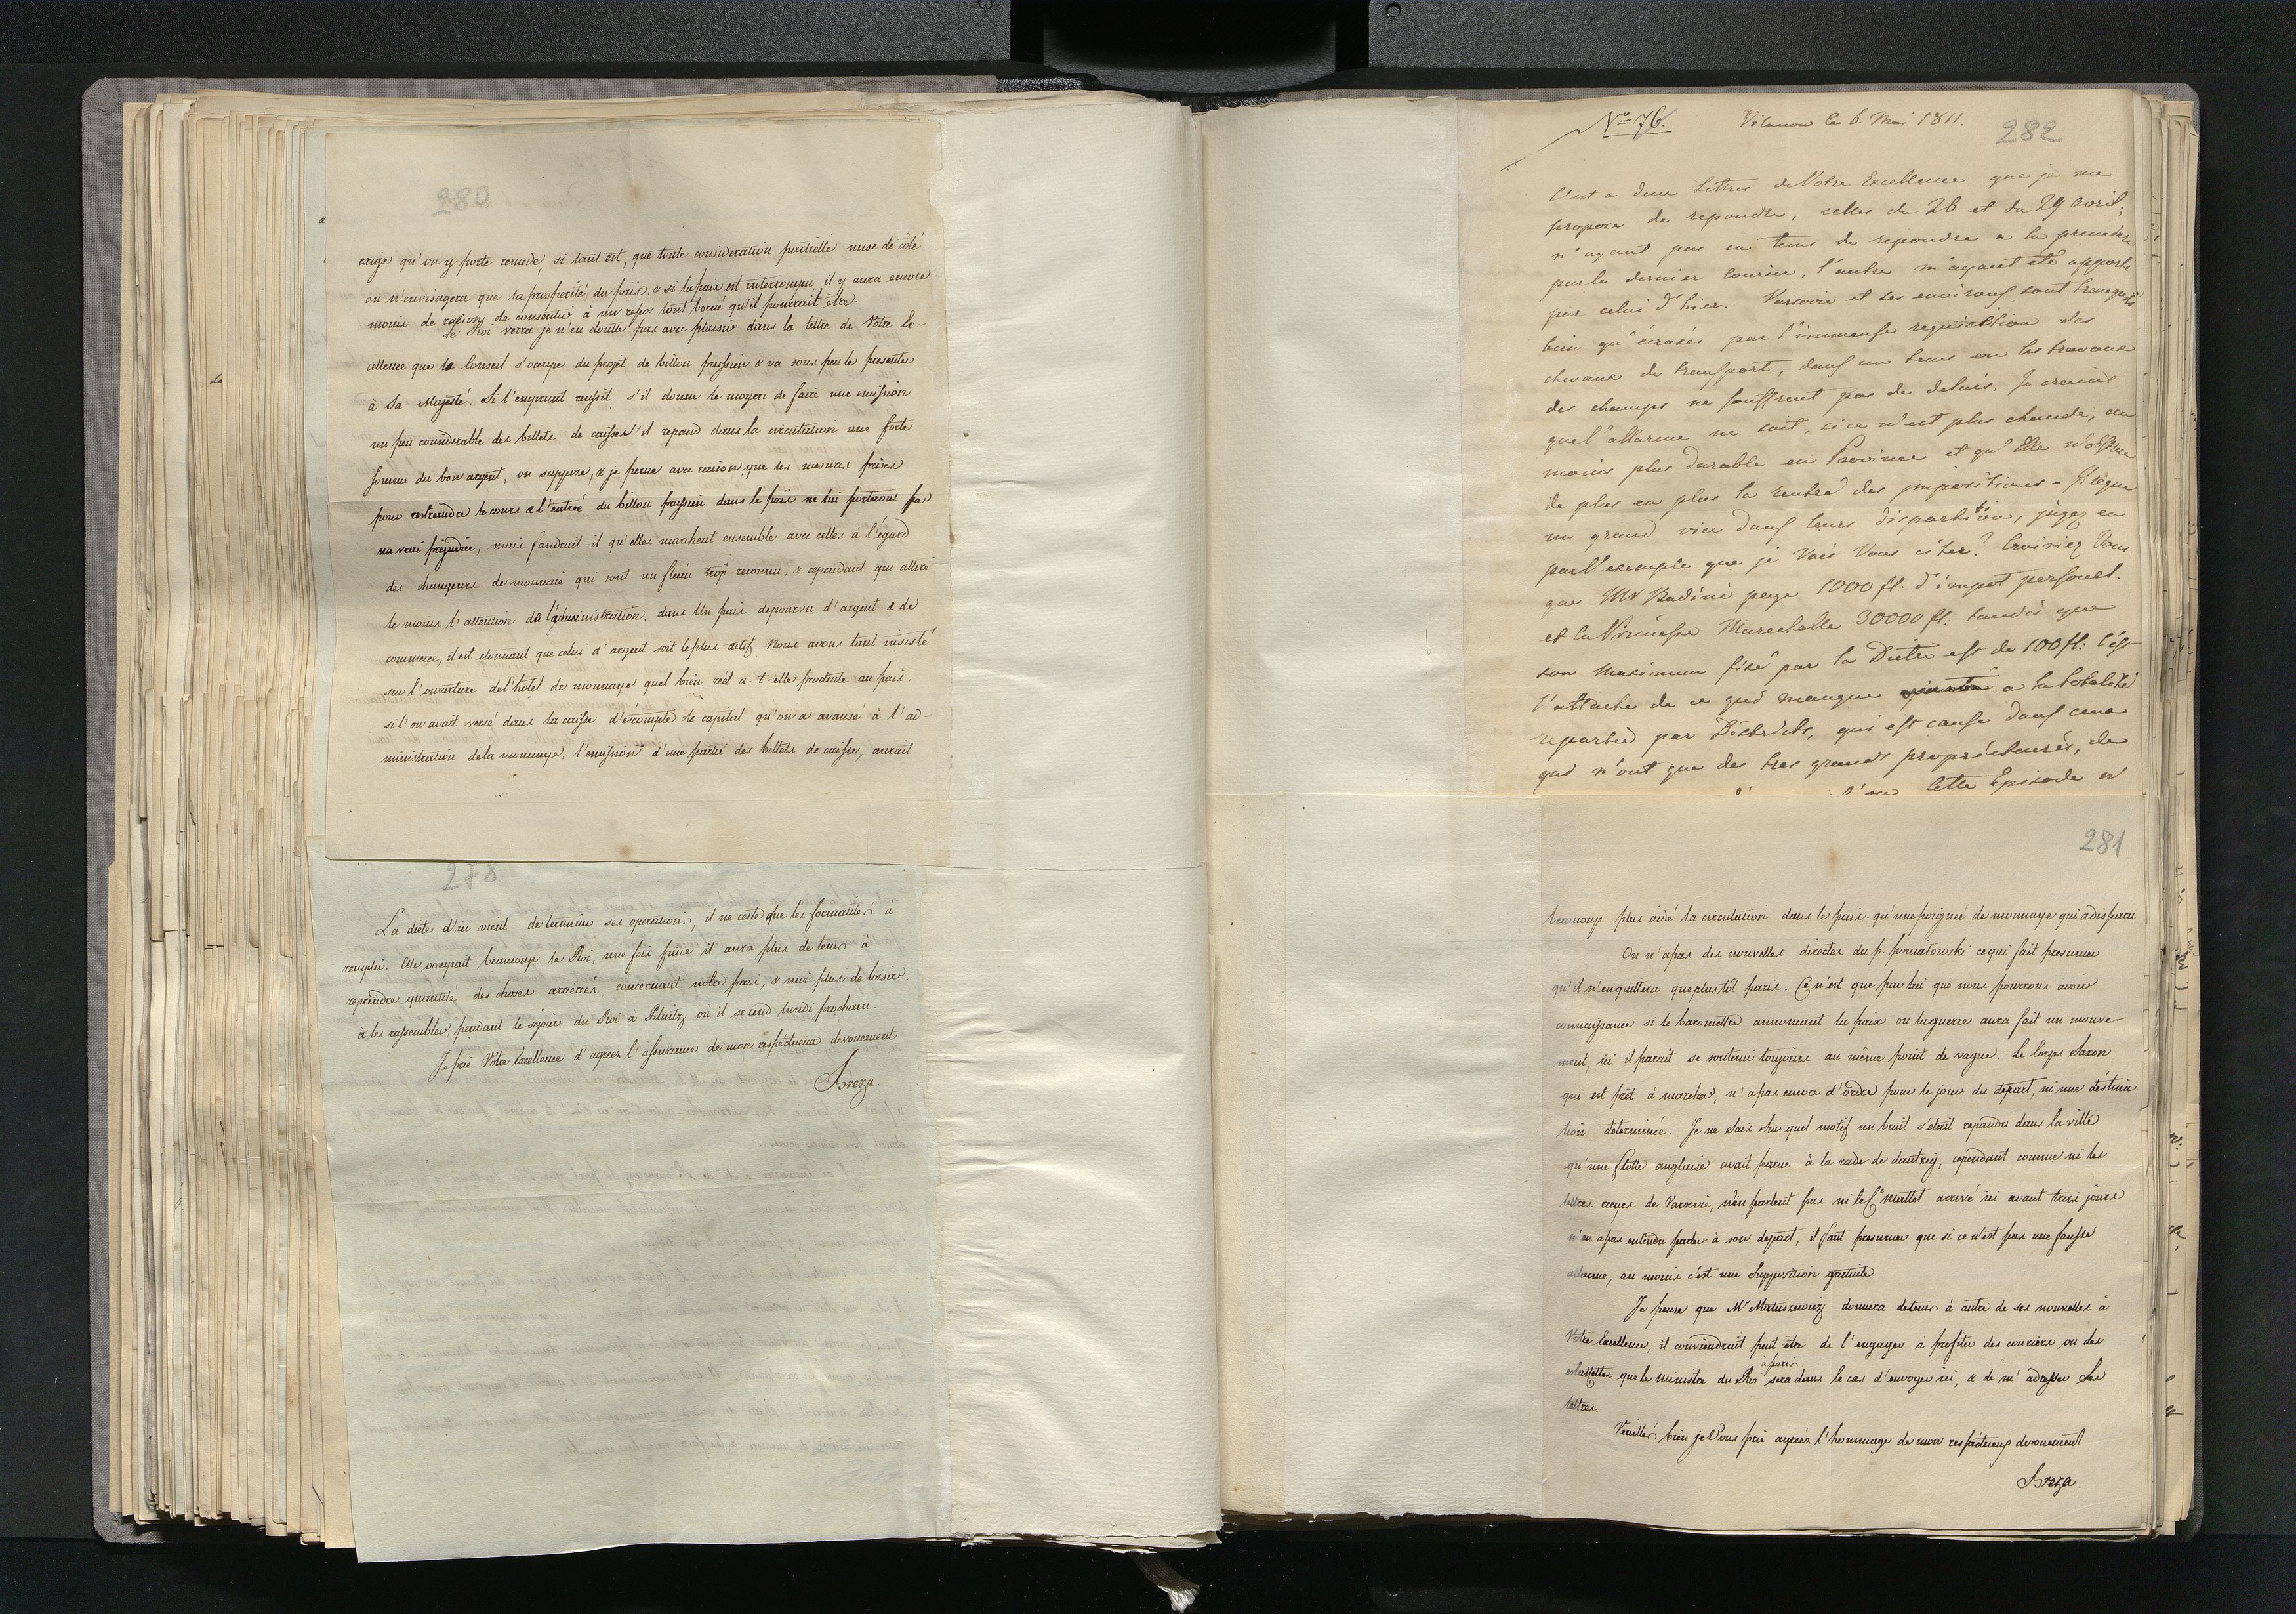 280
exige qu'on y porte remede, si tant est, que toute consideration partielle mise de coté
on n'envisagera que la prosperité du païs. & si la paix est interrompu, il y aura encore
moins de raisons de consentir à un repos tout borné qu'il pourrait être.
Le Roi verra je n'en doutte pas avec plaisir dans la lettre de Votre Ex-
cellence que le Conseil s'occupe du projet de billon prussien & va sous peu le presenter
à Sa Majesté. Si l'emprunt reussit s'il donne le moyen de faire une emission
un peu considerable des billets de caisse s'il repand dans la circulation une forte
somme du bon argent, on suppose, & je pense avec raison, que les mesures prises
pour restreindre le cours & l'entrée du billon prussien dans le païs ne lui porterons pas
un vrai prejudice, mais faudrait-il qu'elles marchent ensemble avec celles à l'égard
des changeurs de monnaie qui sont un fleau trop reconnu, & cependant qui attire
le moins l'attention de l'administration, dans un païs depourvu d'argent & de
commerce, il est etonnant que celui d'argent soit le plus actif. Nous avons tant insisté
sur l'ouverture de l'hotel de monnaye quel bien réel a-t-elle produite au païs.
si l'on avait versé dans la caisse d'escompte le capital qu'on a avansé à l'ad-
ministration de la monnaye, l'emission d'une partie des billets de caisse, aurait
278
La diète d'ici vient de terminer ses operations, il ne reste que les formalités à
remplir. Elle occupait beaucoup le Roi, une fois finie il aura plus de tems à
reprendre quantité des choses arrierés concernant notre païs, & moi plus de loisir
à les rassembler, pendant le sejour du Roi à Pilnitz où il se rend lundi prochain.
Je prie Votre Excellence d'agreer l'assurance de mon respectueux devouement
Breza.
No 76. Vilanow le 6. Mai 1811.
282
C'est a deux Lettres de Votre Excellence que je me
propose de repondre, celles du 26 et du 29 avril;
n'ayant pas eu tems de repondre a la premiere
par le dernier courier, l'autre m'ayant eté apporté
par celui d'hier. Varsovie et ses environs sont tranquils
bien qu'écrasés par l'immense requisition des
chevaux de transport, dans un tems ou les travaux
des champs ne souffrent pas de delais. Je crains
que l'allarme ne soit, si ce n'est plus chaude, au
moins plus durable en Province et qu'Elle n'obstrue
de plus en plus la rentré des impositions - Il regne
un grand vice dans leurs dispartition, jugez en
par l'exemple que je Vais Vous citer? Croiriez Vous
que Mr Badini paye 1000 fl: d'impot personel.
et la Princesse Marechalle 30000 fl: tandis que
son maximum fixé par la Diette est de 100 fl: c'est
l'attache de ce qui manque a la totalité
repartie par Districts, qui est cause dans ceux
qui n'ont que des tres grands proprietaires, de
cette Episode n'
281
beaucoup plus aidé la circulation dans le païs qu'une poignée de monnaye qui a disparu
On n'a pas des nouvelles directes du p. poniatowski ce qui fait presumer
qu'il n'en quittera que plus tôt paris. Ce n'est que par lui que nous pourrons avoir
connaissance si le barometre annoncant la paix ou la guerre aura fait un mouve-
ment, ici il parait se soutenir toujours au même point de vague. Le Corps Saxon
qui est prêt à marcher, n'a pas encore d'ordre pour le jour du depart, ni une destina
tion determinée. Je ne sais sur quel motif un bruit s'était repandu dans la ville
qu'une flotte anglaise avait parue à la rade de dantzig, cependant comme ni les
lettres reçues de Varsovie, n'en parlent pas ni le Cte Mattet arrivé ici avant trois jours
n'en a pas entendu parler à son depart, il faut presumer que si ce n'est pas une fausse
allarme, au moins c'est une supposition gratuite
Je pense que Mr Matuszewicz donnera de tems à autre de ses nouvelles à
Votre Excellence, il conviendrait peut être de l'engager à profiter des couriers ou des
estaffettes que le ministre du Roi à paris sera dans le cas d'envoyer ici, & de m'adresser ses
lettres.
Veuillés bien je Vous prie agréer l'hommage de mon respectueux devouement
Breza.